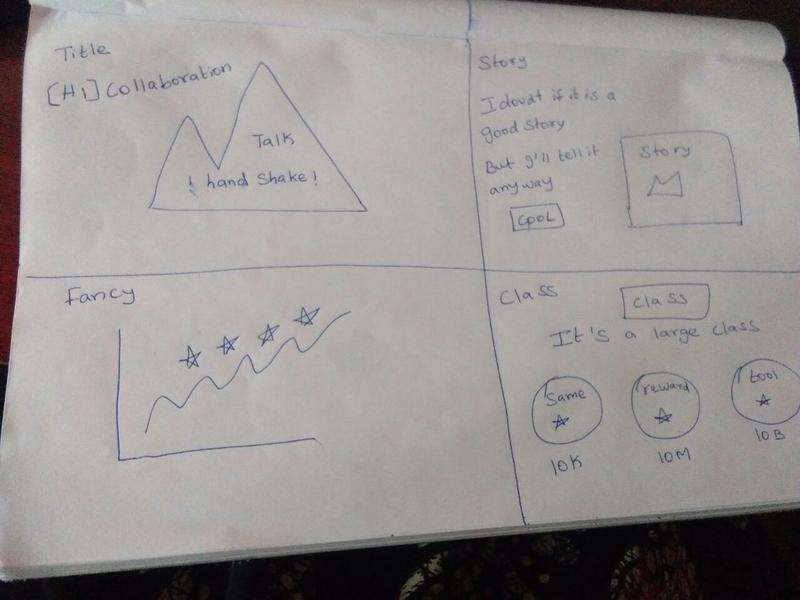 Title
[H1] Collaboration
Talk
! hand Shake!
Story
I doudt if it is a
good Story
But I'll tell it
anyway
COOL
Story
Fancy
Class
class
It's a large class
Same
reward
tool
10K
10M
10B